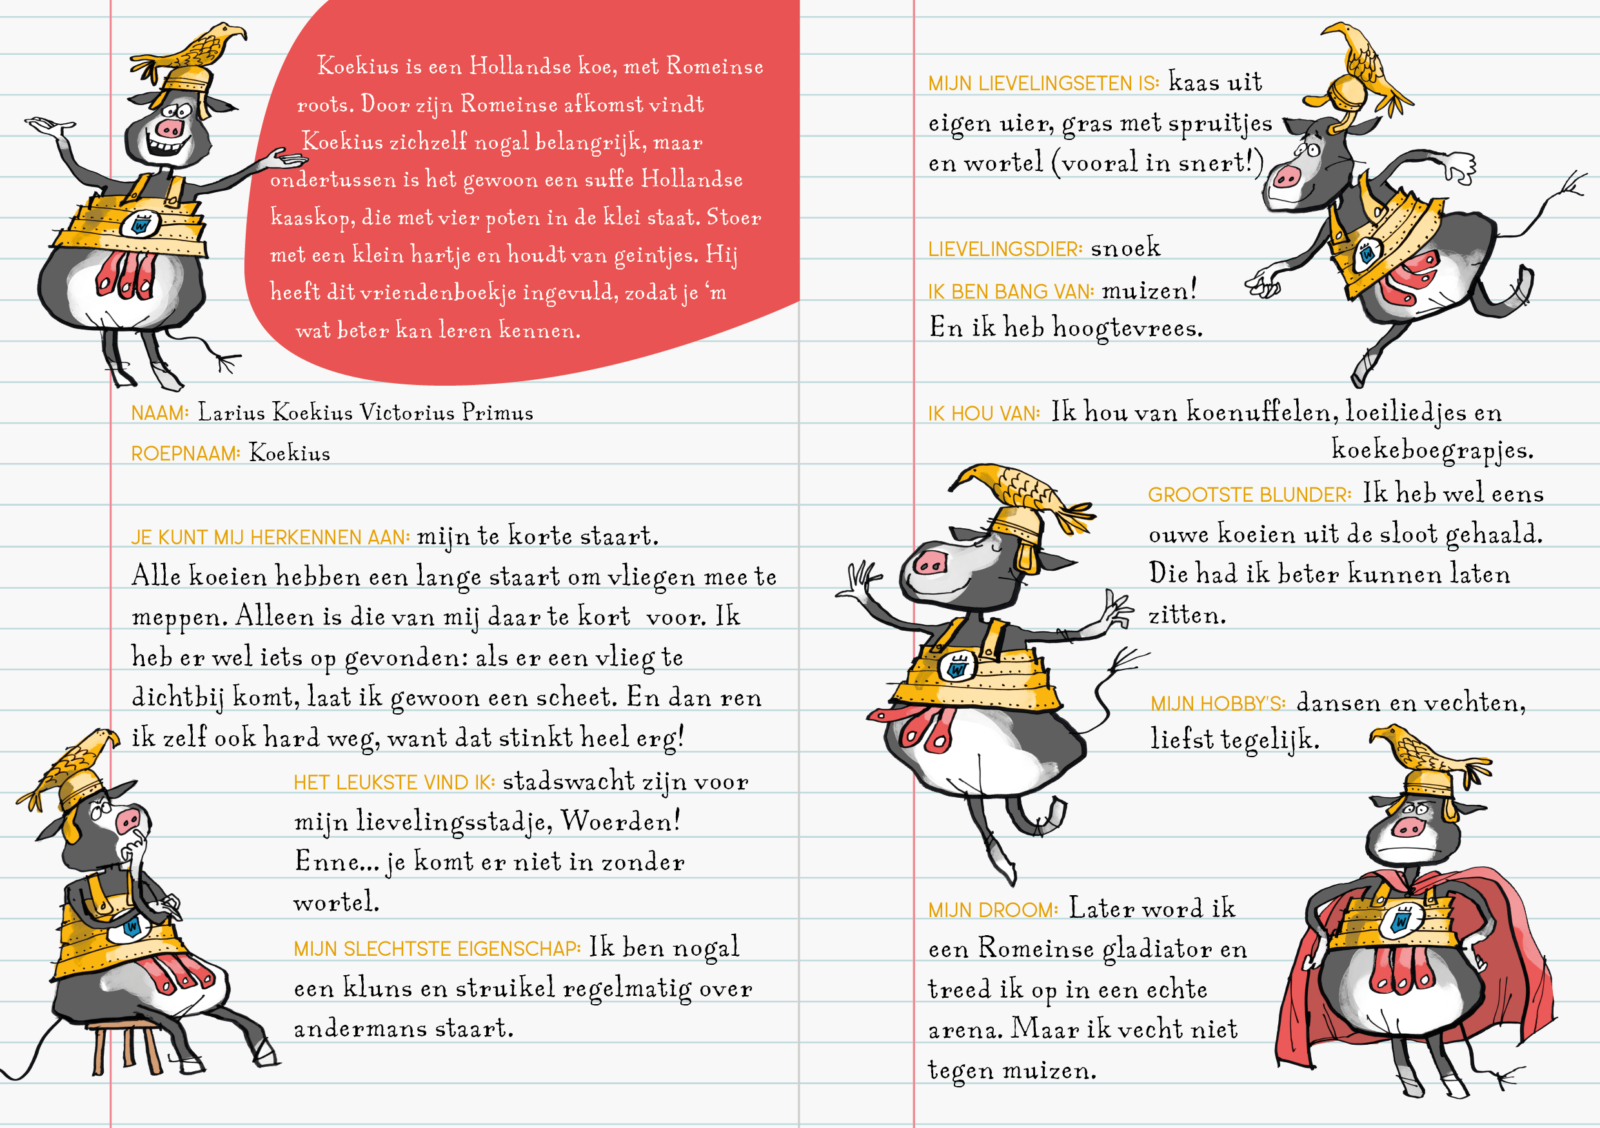 Koekius is een Hollandse koe, met Romeinse
roots. Door zijn Romeinse afkomst vindt
Koekius zichzelf nogal belangrijk, maar
ondertussen is het gewoon een suffe Hollandse
kaaskop, die met vier poten in de klei staat. Stoer
met een klein hartje en houdt van geintjes. Hij
heeft dit vriendenboekje ingevuld, zodat je ‘m
wat beter kan leren kennen.
NAAM: Larius Koekius Victorius Primus
ROEPNAAM: Koekius
JE KUNT MIJ HERKENNEN AAN: mijn te korte staart.
Alle koeien hebben een lange staart om vliegen mee te
meppen. Alleen is die van mij daar te kort voor. Ik
heb er wel iets op gevonden: als er een vlieg te
dichtbij komt, laat ik gewoon een scheet. En dan ren
ik zelf ook hard weg, want dat stinkt heel erg!
HET LEUKSTE VIND IK: stadswacht zijn voor
mijn lievelingsstadje, Woerden!
Enne... je komt er niet in zonder
wortel.
MIJN SLECHTSTE EIGENSCHAP: Ik ben nogal
een kluns en struikel regelmatig over
andermans staart.
MIJN LIEVELINGSETEN IS: kaas uit
eigen uier, gras met spruitjes
en wortel (vooral in snert!)
LIEVELINGSDIER: snoek
IK BEN BANG VAN: muizen!
En ik heb hoogtevrees.
IK HOU VAN: Ik hou van koenuffelen, loeiliedjes en
koekeboegrapjes.
GROOTSTE BLUNDER: Ik heb wel eens
ouwe koeien uit de sloot gehaald.
Die had ik beter kunnen laten
zitten.
MIJN HOBBY'S: dansen en vechten,
liefst tegelijk.
MIJN DROOM: Later word ik
een Romeinse gladiator en
treed ik op in een echte
arena. Maar ik vecht niet
tegen muizen.
W
W
W
W
W